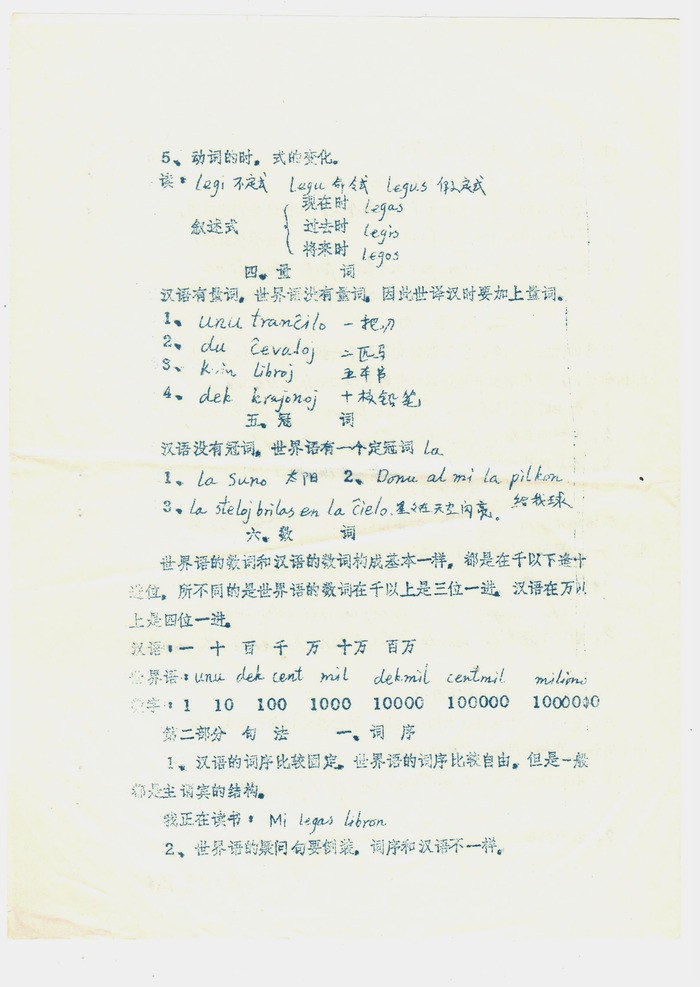 5、动词的时，式的变化。
读：legi 不定式 legu 命令式 legus 假定式
现在时 legas
叙述式 过去时 legis
将来时 legos
四、量 词
汉语有量词，世界语没有量词，因此世译汉时要加上量词。
1、 unu tranĉilo 一把刀
2、 du ĉevaloj 二匹马
3、 kvin libroj 五本书
4、 dek krajonoj 十枝铅笔
五、冠 词
汉语没有冠词，世界语有一个定冠词 la
1、 la suno 太阳 2、 Donu al mi la pilkon 给我球
3、 la steloj brilas en la ĉielo. 星星在天空闪亮。
六、数 词
世界语的数词和汉语的数词构成基本一样，都是在千以下逢十
进位，所不同的是世界语的数词在千以上是三位一进，汉语在万以
上是四位一进。
汉语：一 十 百 千 万 十万 百万
世界语：unu dek cent mil dekmil centmil miliono
数字：1 10 100 1000 10000 100000 1000000
第二部分 句 法 一、词 序
1、汉语的词序比较固定，世界语的词序比较自由，但是一般
都是主谓宾的结构。
我正在读书：Mi legas libron
2、世界语的疑问句要倒装，词序和汉语不一样。